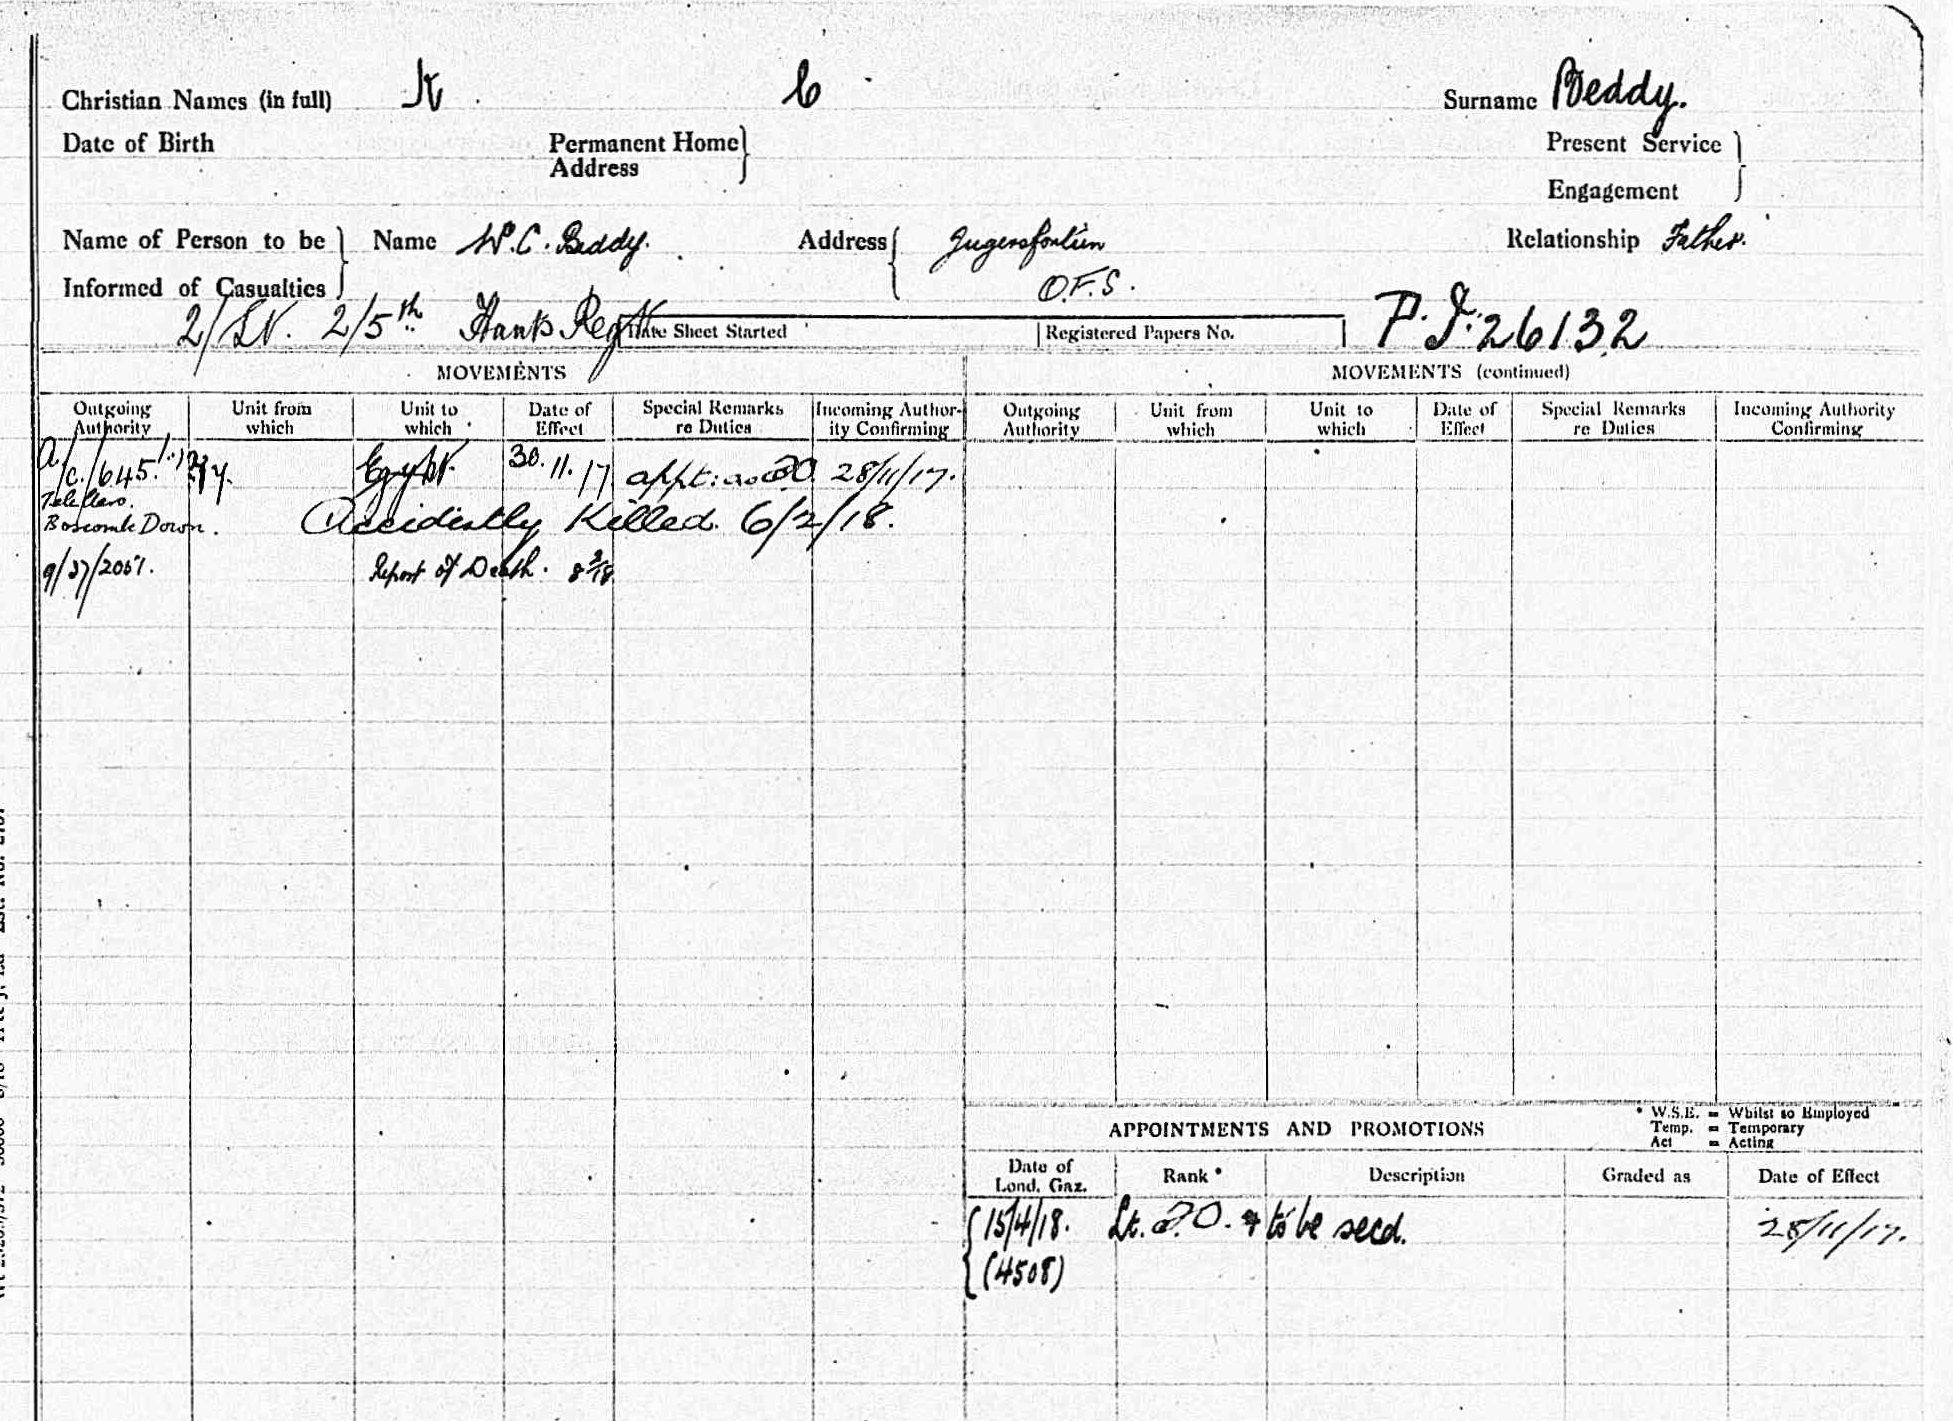 Christian Names (in full) K. C. Surname Beddy.
Date of Birth Permanent Home Address Present Service
Engagement
Name of Person to be Informed of Casualties Name W. C. Beddy. Address Jagersfontein Relationship Father.
O.F.S.
2/Lt. 2/5th Hants Regt Date Sheet Started Registered Papers No. P. I. 26132
MOVEMENTS MOVEMENTS (continued)
Outgoing Authority Unit from which Unit to which Date of Effect Special Remarks re Duties Incoming Authority Confirming Outgoing Authority Unit from which Unit to which Date of Effect Special Remarks re Duties Incoming Authority Confirming
A/C./645. Egypt. 30.11.17 appt: as F.O. 28/11/17.
Boscombe Down. Accidently Killed. 6/2/18.
9/37/2007. Report of Death. 8/2/18
* W.S.E. = Whilst so Employed
Temp. = Temporary
Act = Acting
APPOINTMENTS AND PROMOTIONS
Date of Lond. Gaz. Rank * Description Graded as Date of Effect
15/4/18. Lt. F.O. & to be secd. 28/11/17.
(4508)